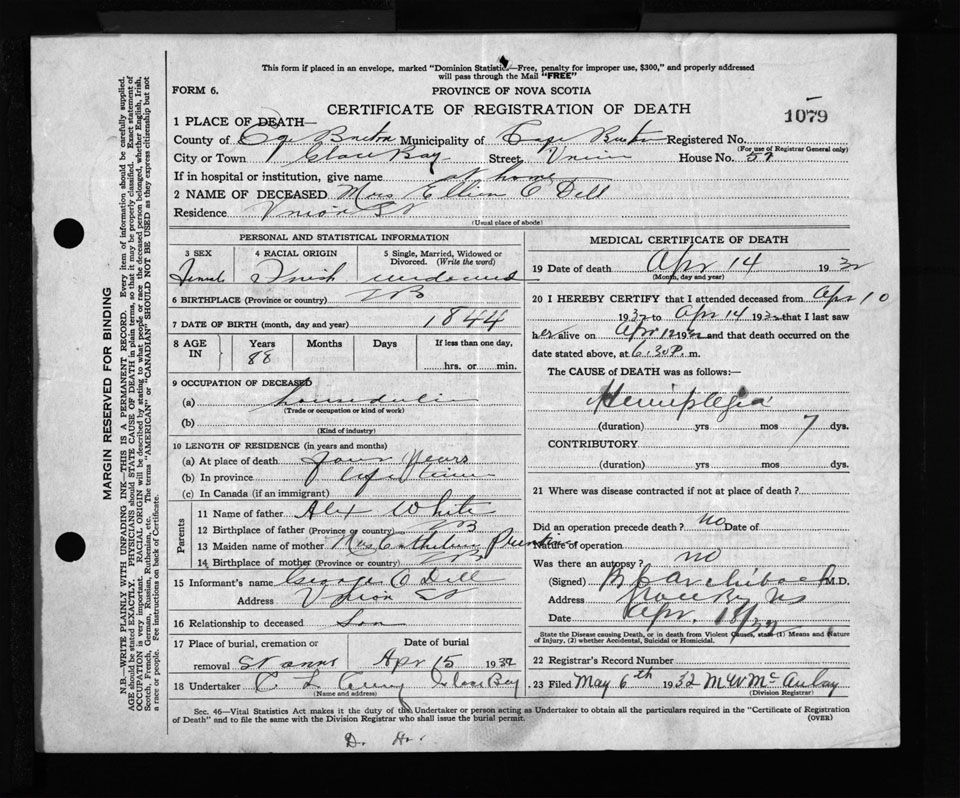 This form if placed in an envelope, marked "Dominion Statistics—Free, penalty for improper use, $300," and properly addressed
will pass through the Mail "FREE"
FORM 6.
PROVINCE OF NOVA SCOTIA
CERTIFICATE OF REGISTRATION OF DEATH
1079
1 PLACE OF DEATH—
County of Cape Breton Municipality of Cape Breton Registered No.
(For use of Registrar General only)
City or Town Glace Bay Street Union House No. 57
If in hospital or institution, give name at home
2 NAME OF DECEASED Mrs Ellen O Dell
Residence Union St
(Usual place of abode)
PERSONAL AND STATISTICAL INFORMATION
3 SEX
4 RACIAL ORIGIN
5 Single, Married, Widowed or Divorced. (Write the word)
Female Irish widowed
6 BIRTHPLACE (Province or country)
7 DATE OF BIRTH (month, day and year) 1844
8 AGE IN
Years Months Days If less than one day,
88
hrs. or min.
9 OCCUPATION OF DECEASED
(a)
(Trade or occupation or kind of work)
(b)
(Kind of industry)
10 LENGTH OF RESIDENCE (in years and months)
(a) At place of death Years
(b) In province life time
(c) In Canada (if an immigrant)
Parents
11 Name of father Alex White
12 Birthplace of father (Province or country)
13 Maiden name of mother Mrs
14 Birthplace of mother (Province or country)
15 Informant's name George O Dell
Address Union St
16 Relationship to deceased Son
17 Place of burial, cremation or removal St anns
Date of burial
Apr 15 1932
18 Undertaker Glace Bay
(Name and address)
MEDICAL CERTIFICATE OF DEATH
19 Date of death Apr 14 1932
(Month, day and year)
20 I HEREBY CERTIFY that I attended deceased from Apr 10
1932 to Apr 14 1932 that I last saw
her alive on Apr 12 1932 and that death occurred on the
date stated above, at 6.30 P. m.
The CAUSE of DEATH was as follows:—
Hemiplegia
(duration) yrs mos 7 dys.
CONTRIBUTORY
(duration) yrs mos dys.
21 Where was disease contracted if not at place of death?
Did an operation precede death? no Date of
Nature of operation
Was there an autopsy? no
(Signed) Archibald M.D.
Address Glace Bay NS
Date Apr. 18/32
State the Disease causing Death, or in death from Violent Causes, state (1) Means and Nature
of Injury, (2) whether Accidental, Suicidal or Homicidal.
22 Registrar's Record Number
23 Filed May 6th 1932 M W McAulay
(Division Registrar)
Sec. 46—Vital Statistics Act makes it the duty of the Undertaker or person acting as Undertaker to obtain all the particulars required in the "Certificate of Registration
of Death" and to file the same with the Division Registrar who shall issue the burial permit.
(OVER)
D. H.
MARGIN RESERVED FOR BINDING
N.B.—WRITE PLAINLY WITH UNFADING INK—THIS IS A PERMANENT RECORD. Every item of information should be carefully supplied.
AGE should be stated EXACTLY. PHYSICIANS should STATE CAUSE OF DEATH in plain terms, so that it may be properly classified. Exact statement of
OCCUPATION is very important. RACIAL ORIGIN will be described by stating to what people or race the deceased person belonged, whether English, Irish,
Scotch, French, German, Russian, Ruthenian, etc. The terms "AMERICAN" or "CANADIAN" SHOULD NOT BE USED as they express citizenship but not
a race or people. See instructions on back of Certificate.